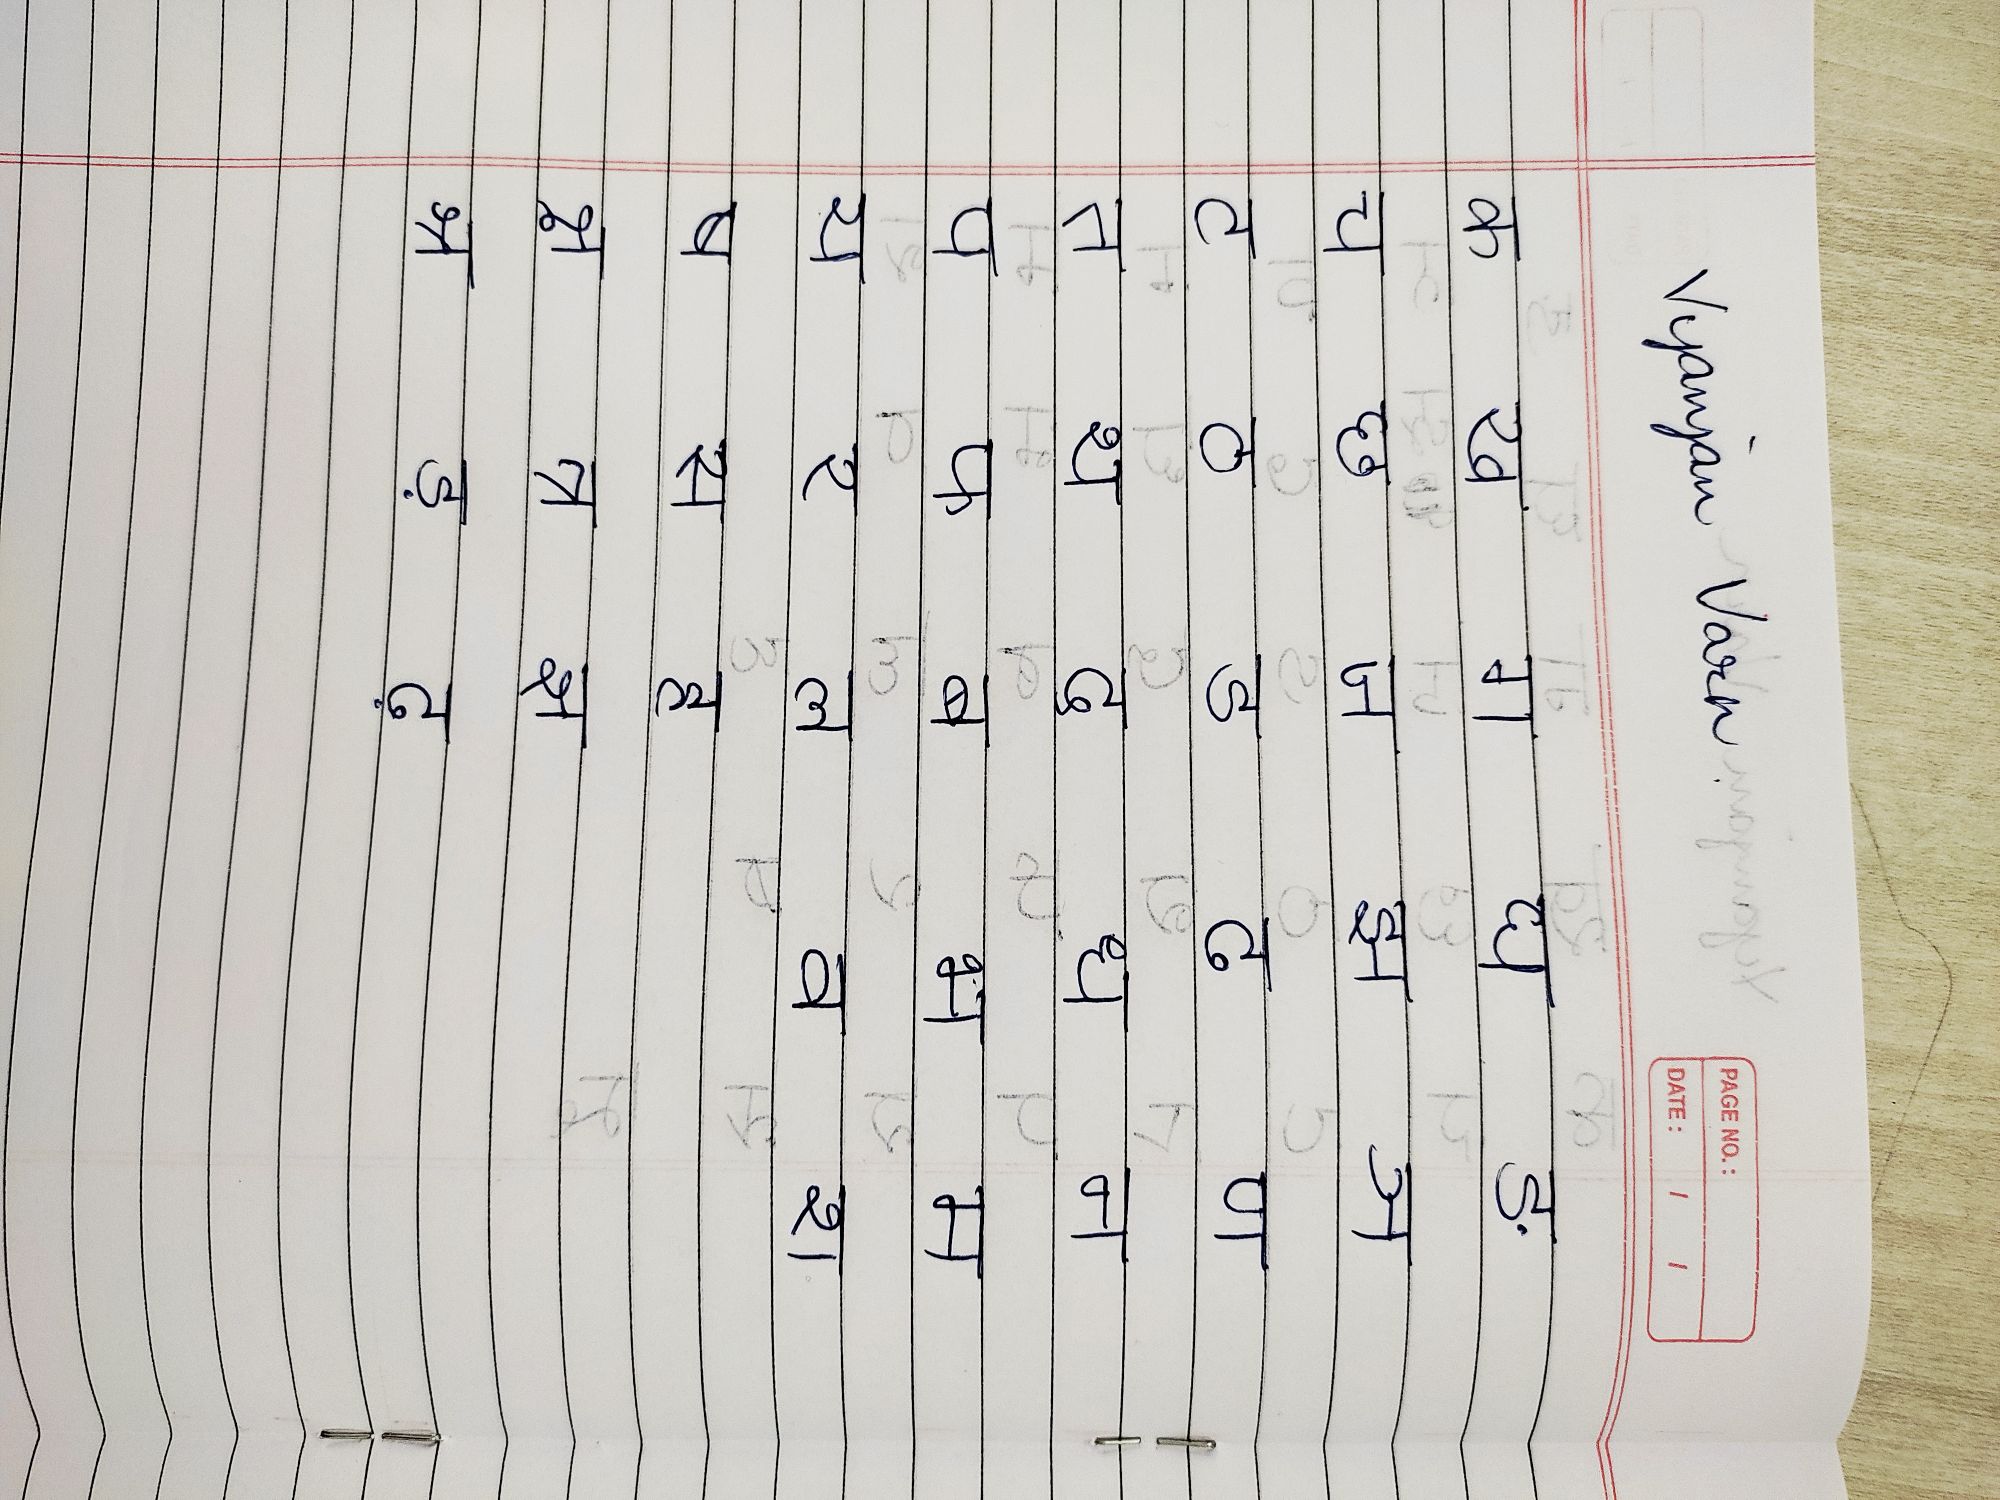 Vyanjan Varn
PAGE NO.:
DATE: / /
क ख ग घ ङ
च छ ज झ ञ
ट ठ ड ढ ण
त थ द ध न
प फ ब भ म
य र ल व श
ष स ह
क्ष त्र ज्ञ
श्र ड़ ढ़